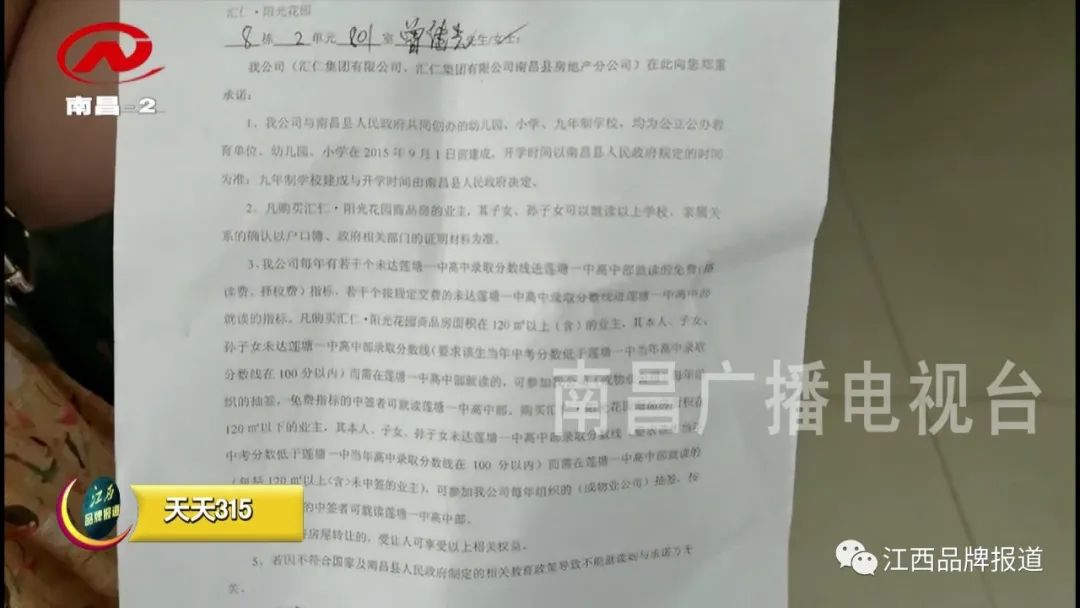 汇仁·阳光花园
8栋 2单元 801室 先生/女士:
南昌-2
我公司(汇仁集团有限公司、汇仁集团有限公司南昌县房地产分公司)在此向您郑重
承诺:
1、我公司与南昌县人民政府共同创办的幼儿园、小学、九年制学校,均为公立公办教
育单位。幼儿园、小学在2015年9月1日前建成,开学时间以南昌县人民政府规定的时间
为准;九年制学校建成与开学时间由南昌县人民政府决定。
2、凡购买汇仁·阳光花园商品房的业主,其子女、孙子女可以就读以上学校,亲属关
系的确认以户口簿、政府相关部门的证明材料为准。
3、我公司每年有若干个未达莲塘一中高中录取分数线进莲塘一中高中部就读的免费(
读费、择校费)指标,若干个按规定交费的未达莲塘一中高中录取分数线进莲塘一中高中部
就读的指标。凡购买汇仁·阳光花园商品房面积在120㎡以上(含)的业主,其本人、子女、
孙子女未达莲塘一中高中部录取分数线(要求该生当年中考分数低于莲塘一中当年高中录取
分数线在100分以内)而需在莲塘一中高中部就读的,可参加我 (或物业 每年组
织的抽签,免费指标的中签者可就读莲塘一中高中部。购买汇 阳光花园 面积在
120㎡以下的业主,其本人、子女、孙子女未达莲塘一中高中部录取分数线 要求 当
中考分数低于莲塘一中当年高中录取分数线在 100 分以内)而需在莲塘一中高中部就读的
(包括120㎡以上<含>未中签的业主),可参加我公司每年组织的(或物业公司)抽签,按
的中签者可就读莲塘一中高中部。
房屋转让的,受让人可享受以上相关权益。
5、若因不符合国家及南昌县人民政府制定的相关教育政策导致不能就读则与承诺方无
关。
南昌广播电视台
江西
品牌报道
天天315
江西品牌报道